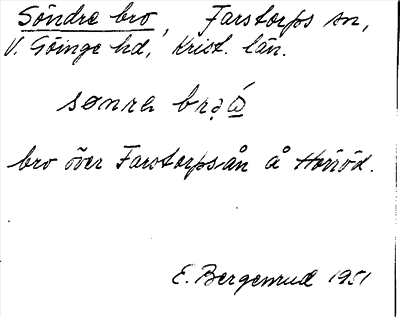 Söndre bro, Farstorps sn,
V. Göinge hd, Krist. län.
bro över Farstorpsån å Horröd.
E. Bergenrud 1951